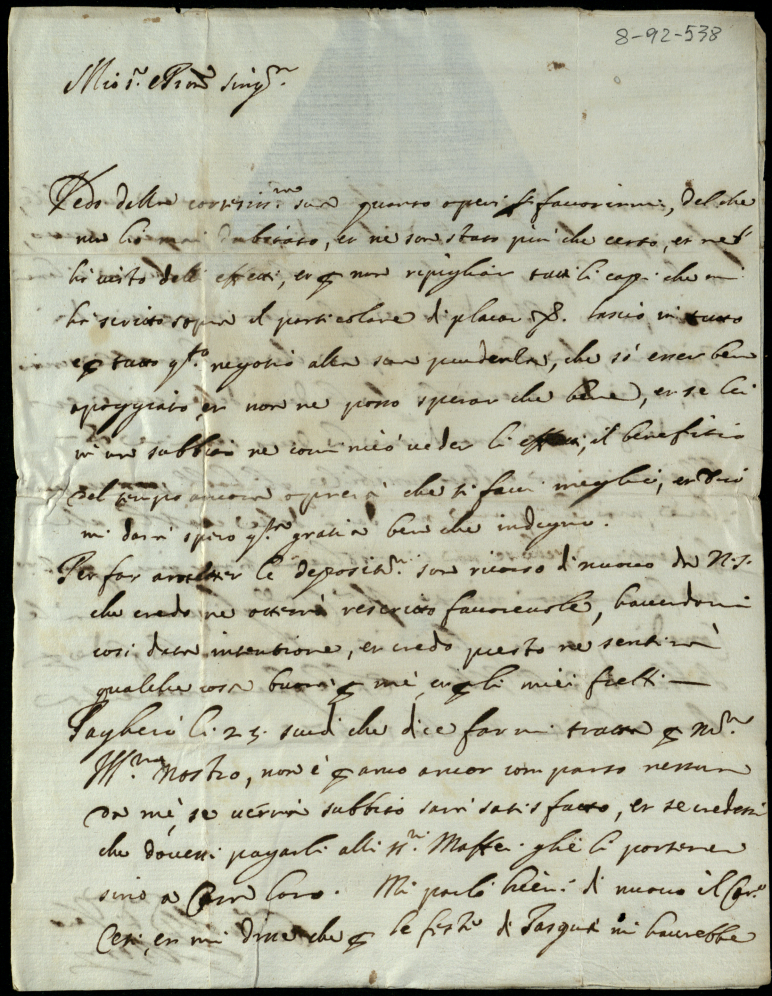 8-92-538
Mio S.r e Pron sing.r
Vedo dalla cortesiss.ma sua quanto operi p favorirmi, del che
non hò mai dubitato, et ne son stato più che certo, et ne
hà visto delli effetti, et p non ripigliar tutti li capi che mi
hà scritto sopra il particolare di placar lascio in tutto
e p tutto q.to negotio alla sua prudenza, che sò esser ben
apoggiato, et non ne posso sperar che bene, et se lei
in un subbito ne cominciò veder li effetti, il benefitio
del tempo ancora oprerà che si facci meglio, et Dio
mi darà spero q.sta gratia ben che indegno.
Per far le deposit.ni son ricorso di nuovo da N.S.
che credo ne otterrò rescritto favorevole, havendomi
così data intentione, et credo presto ne sentirà
qualche cosa buona p me, et p li miei frelli —
Pagherò li 25. scudi che dice farmi tratta p
Ill.mo Nostro, non è p anco ancor comparso nessun
da me, se verrà subbito sarà satisfatto, et se credessi
che dovessi pagarli alli SS.ri Maffei gliè li porterei
sino a Casa loro. Mi parlò hieri di nuovo il
Cesi, et mi disse che p le feste di Pasqua mi haurebbe